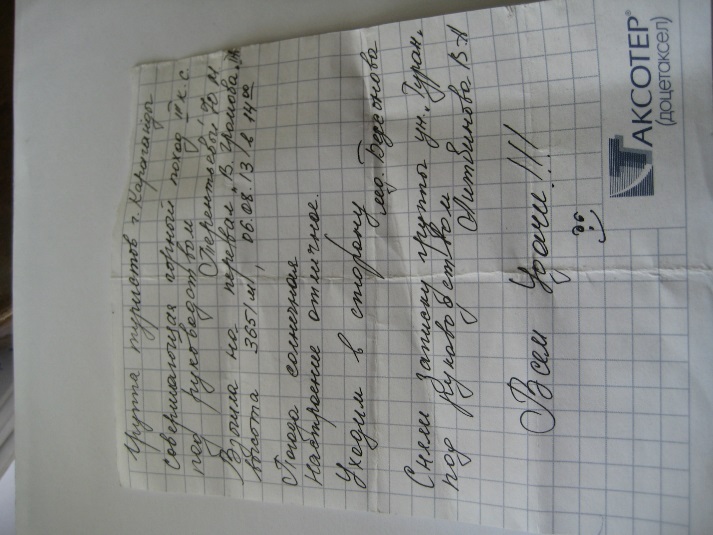 Группа туристов г. Караганды
Совершающая горный поход III к.с.
под руководством
Терентьевой Ю.М
Взошла на перевал „В. Громова"
высота 3651 м, 06.08.13 в 14⁰⁰
Погода солнечная
Настроение отличное.
Уходим в сторону
лед. Бессонова
Сняли записку группы ун. „Туран"
под руководством
Литвинова В.А
Всем Удачи!!!
АКСОТЕР®
(доцетаксел)